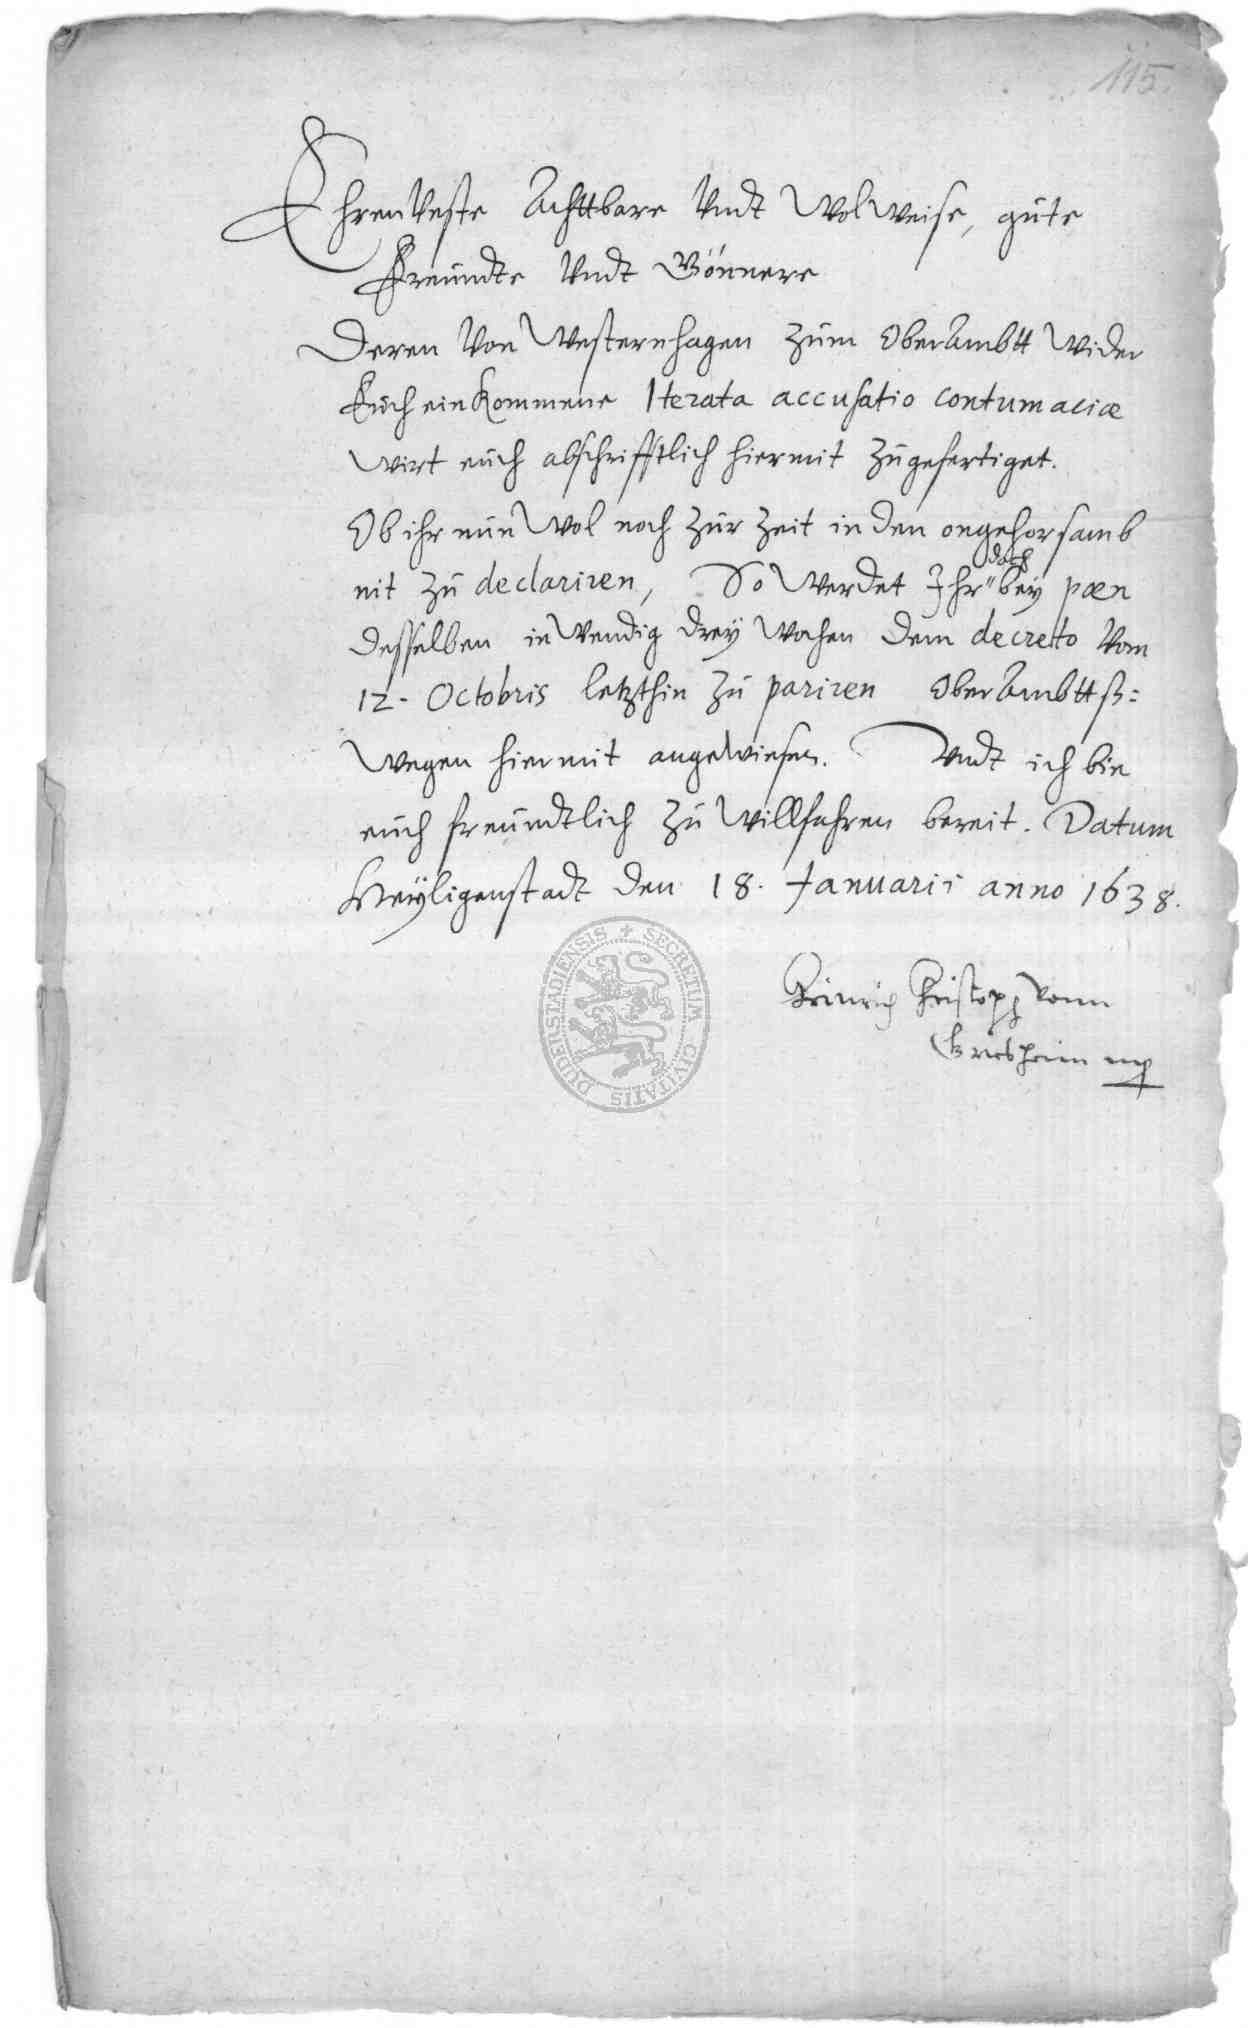 115.
EhrenVeste Achttbare Vndt WolWeise, gute
Freundte Vndt Gönnere
Deren Von Westernhagen zum OberAmbtt Wider
Euch einkommene Iterata accusatio contumaciæ
Wirt euch abschrifftlich hiermit zugefertiget.
Ob ihr nun Wol noch zur Zeit in den ongehorsamb
nit zu declariren, So Werdet Ihr doch bey pœn
desselben inwendig drey Wochen dem decreto Vom
12. Octobris letzthin zu pariren OberAmbttß:
Wegen hiermit angewiesen. Vndt ich bin
euch freundtlich zu Willfahren bereit. Datum
Heyligenstadt den 18. Januarii anno 1638.
SECRETUM CIVITATIS DUDERSTADIENSIS
Heinrich Christoph vonn
Griesheim mp